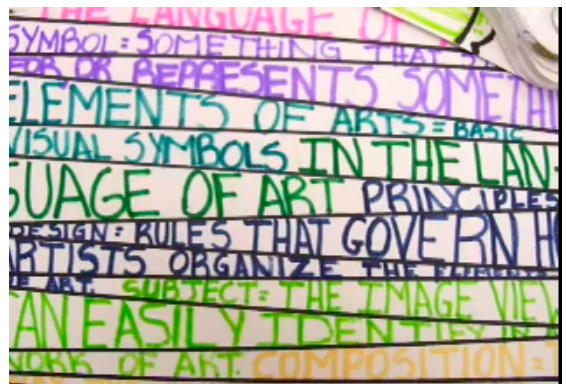 THE LANGUAGE OF
SYMBOL = SOMETHING THAT
FOR OR REPRESENTS SOMETHI
ELEMENTS OF ARTS = BASIC
VISUAL SYMBOLS IN THE LAN-
GUAGE OF ART PRINCIPLES
DESIGN = RULES THAT GOVERN H
ARTISTS ORGANIZE THE ELEMENTS
OF ART. SUBJECT = THE IMAGE VIEW
AN EASILY IDENTIFY IN A
WORK OF ART. COMPOSITION =